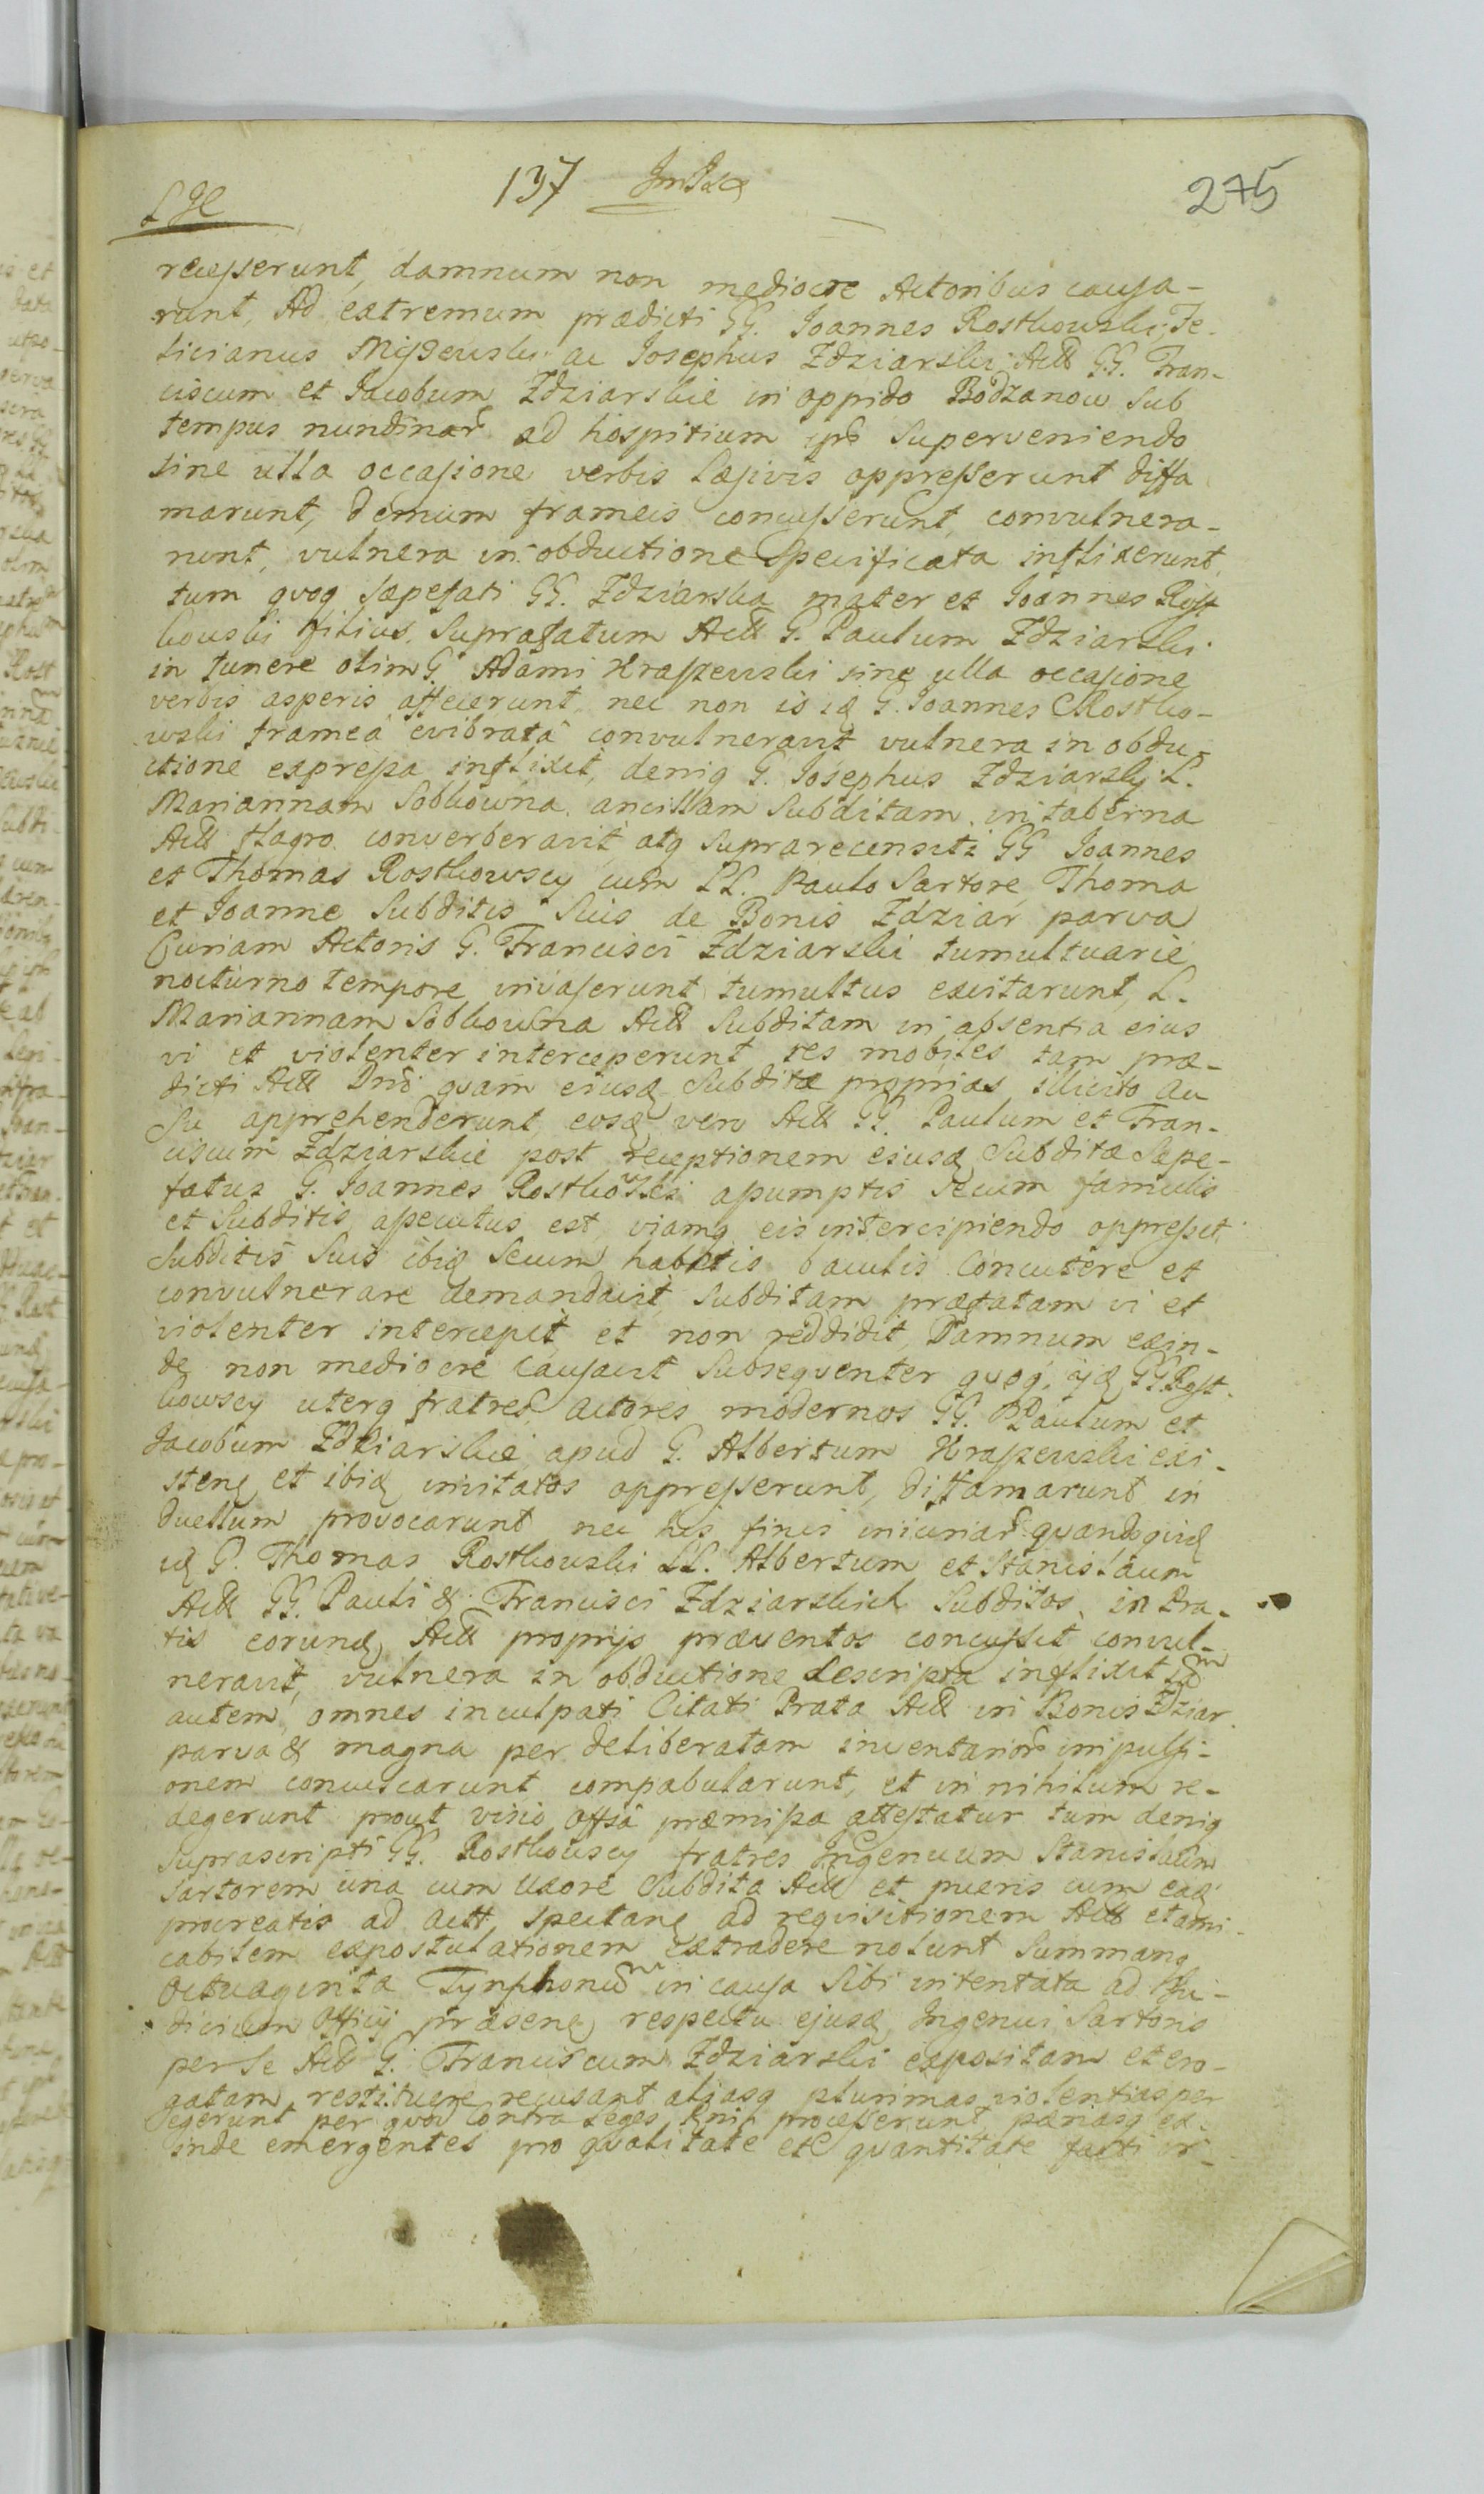 137
275
recesserunt, damnum non mediocre Actoribus causa-
runt, Ad extremum prædicti GG. Ioannes Rostkowski, Fe-
licianus Miszewski ac Iosephus Zdziarski Actt GG. Fran-
ciscum et Iacobum Zdziarskie in oppido Bodzanow sub
tempus nundinar ad hospitium ips superveniendo
sine ulla occasione verbis læsivis oppresserunt diffa
marunt, demum frameis concusserunt, convulnera-
runt, vulnera in obductione specificata inflixerunt,
tum quoq sæpefati GG. Zdziarska mater et Ioannes Rost
kowski filius, suprafatum Actt G. Paulum Zdziarski
in funere olim G. Adami Kraszewski sine ulla occasione
verbis asperis affecerunt, nec non is id G. Ioannes Rostko-
wski frameâ evibratâ convulneravit vulnera in obdu-
ctione expressa inflixit, deniq G. Iosephus Zdziarski L.
Mariannam Sobkowna ancillam subditam in taberna
Actt flagro converberavit, atq suprarecensiti GG Ioannes
et Thomas Rostkowscy cum LL. Paulo Sartore, Thoma
et Ioanne subditis suis de Bonis Zdziar parva
Curiam Actoris G. Francisci Zdziarski tumultuarie
nocturno tempore invaserunt tumultus excitarunt, L.
Mariannam Sobkowna Actt subditam in absentia eius
vi et violenter interceperunt res mobiles tam præ-
dicti Actt quam eiusd subditæ proprias illicito au
su apprehenderunt, eosd vero Actt GG. Paulum et Fran-
ciscum Zdziarskie post receptionem eiusd subditæ sæpe-
fatus G. Ioannes Rostkowski assumptis secum famulis
et subditis assecutus est, viamq eis intercipiendo oppressit,
subditis suis ibid secum habitis baculis concutere et
convulnerare demandavit, subditam præfatam vi et
violenter intercepit et non reddidit, Damnum exin-
de non mediocre causavit subsequenter quoq, iid GG. Rost-
kowscy uterq fratres Actores modernos GG. Paulum et
Iacobum Zdziarskie apud G. Albertum Kraszewski exi-
sten et ibid invitatos oppresserunt, diffamarunt in
duellum provocarunt nec his finis iniuriar quandoquid
id G. Thomas Rostkowski LL. Albertum et Stanislaum
Actt GG. Pauli & Francisci Zdziarskich subditos, in Pra-
tis eorund Actt proprijs præventos concussit convul-
neravit, vulnera in obductione descripta inflixit
autem omnes inculpati Citati Prata Actt in Bonis Zdziar
parva & magna per deliberatam inventarior impulsi-
onem conculcarunt compabularunt, et in nihilum re-
degerunt prout visio præmissa attestatur tum deniq
suprascripti GG. Rostkowscy fratres Ingenuum Stanislaum
sartorem una cum uxore subdita Actt et pueris cum ead
procreatis ad Actt spectan ad requisitionem Actt et ami-
cabilem expostulationem extradere nolunt summamq
octuaginta Tynphonum in causa sibi intentata ad Iu-
dicium Officij præsen respectu ejusd Ingenui Sartoris
per se Actt G. Franciscum Zdziarski expositam et ero-
gatam restituere recusant aliasq plurimas violentias per
egerunt, per quod contra Leges Regni processerunt pænasq ex-
inde emergentes pro qualitate et quantitate facti in-